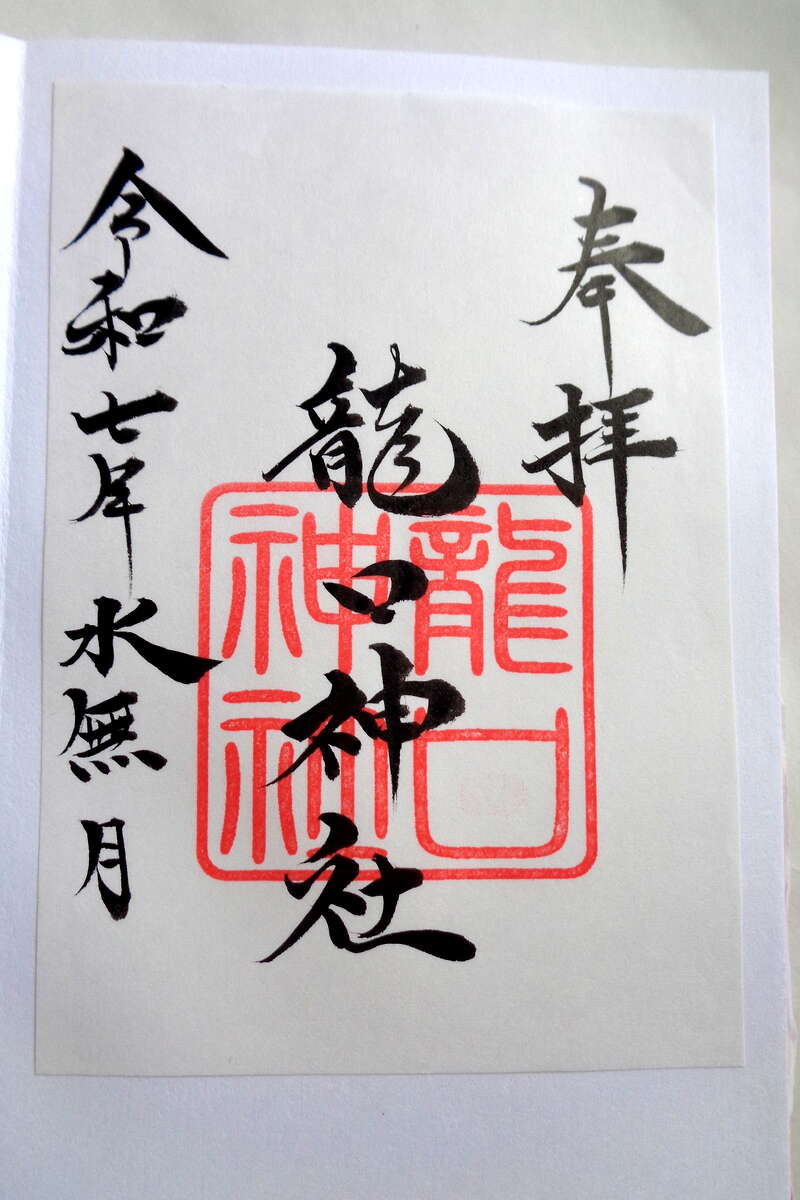 奉拝
龍口神社
龍口
神社
令和七年水無月